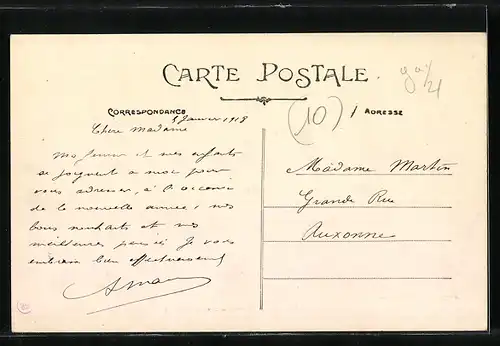 CARTE POSTALE
CORRESPONDANCE
ADRESSE
(10)
Janvier 1918
Chère Madame
Ma femme et mes enfants
se joignent à moi pour
vous adresser, à l'occasion
de la nouvelle année, nos
bons souhaits et nos
meilleures Je vous
embrasse bien affectueusement
Madame Martin
Grande Rue
Auxonne